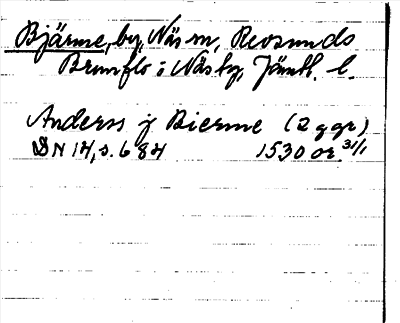 Bjärme, by, Näs sn, Revsunds
Brunflo o Näs tg, Jämtl. l.
Anders j Bierme (2 ggr)
DN 14, s. 684 1530 or. 31/1